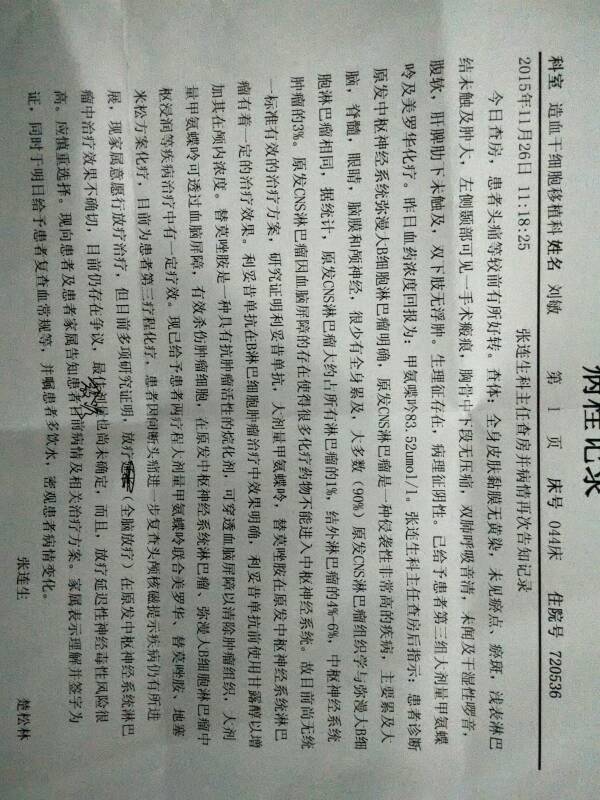 病程记录
科室 造血干细胞移植科 姓名 刘敏 第 1 页 床号 044床 住院号 720536
2015年11月26日 11:18:25 张连生科主任查房并病情再次告知记录
今日查房，患者头痛等较前有所好转。查体：全身皮肤黏膜无黄染，未见瘀点、瘀斑，浅表淋巴
结未触及肿大，左侧颞部可见一手术瘢痕，胸骨中下段无压痛，双肺呼吸音清，未闻及干湿性啰音，
腹软，肝脾肋下未触及，双下肢无浮肿。生理征存在，病理征阴性。已给予患者第三组大剂量甲氨蝶
呤及美罗华化疗。昨日血药浓度回报为：甲氨蝶呤83.52umol/l。张连生科主任查房后指示：患者诊断
原发中枢神经系统弥漫大B细胞淋巴瘤明确，原发CNS淋巴瘤是一种侵袭性非常高的疾病，主要累及大
脑，脊髓，眼睛，脑膜和颅神经，很少有全身累及，大多数（90%）原发CNS淋巴瘤组织学与弥漫大B细
胞淋巴瘤相同，据统计，原发CNS淋巴瘤大约占所有淋巴瘤的1%，结外淋巴瘤的4%-6%，中枢神经系统
肿瘤的3%。原发CNS淋巴瘤因血脑屏障的存在使得很多化疗药物不能进入中枢神经系统。故目前尚无统
一标准有效的治疗方案，研究证明利妥昔单抗，大剂量甲氨蝶呤，替莫唑胺在原发中枢神经系统淋巴
瘤有着一定的治疗效果。利妥昔单抗在B淋巴细胞肿瘤治疗中效果明确，利妥昔单抗前使用甘露醇以增
加其在颅内浓度。替莫唑胺是一种具有抗肿瘤活性的烷化剂，可穿透血脑屏障以清除肿瘤组织，大剂
量甲氨蝶呤可透过血脑屏障，有效杀伤肿瘤细胞，在原发中枢神经系统淋巴瘤、弥漫大B细胞淋巴瘤中
枢浸润等疾病治疗中有一定疗效。现已给予患者两疗程大剂量甲氨蝶呤联合美罗华、替莫唑胺、地塞
米松方案化疗，目前为患者第三疗程化疗，患者因间断头痛进一步复查头颅核磁提示疾病仍有所进
展，现家属意愿行放疗治疗，但目前多项研究证明，放疗（全脑放疗）在原发中枢神经系统淋巴
瘤中治疗效果不确切，目前仍存在争议，最佳剂量也尚未确定，而且，放疗延迟性神经毒性风险很
高。应慎重选择。现向患者及患者家属告知患者目前病情及相关治疗方案。家属表示理解并签字为
证，同时于明日给予患者复查血常规等，并嘱患者多饮水，密观患者病情变化。
张连生 楚松林